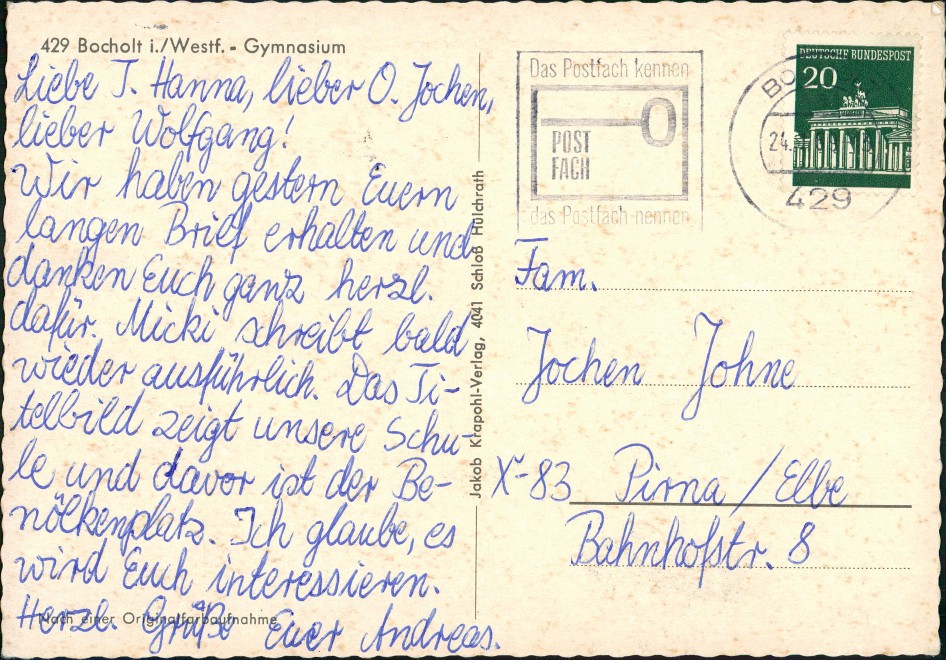 429 Bocholt i./Westf. - Gymnasium
Liebe T. Hanna, lieber O. Jochen,
lieber Wolfgang!
Wir haben gestern Euern
langen Brief erhalten und
danken Euch ganz herzl.
dafür. Micki schreibt bald
wieder ausführlich. Das Ti-
telbild zeigt unsere Schu-
le und davor ist der Be-
nölkenplatz. Ich glaube, es
wird Euch interessieren.
Herzl. Grüße Euer Andreas.
Nach einer Originalfarbaufnahme
Jakob Krapohl-Verlag, 4041 Schloß Hülchrath
Das Postfach kennen
POST
FACH
das Postfach nennen
DEUTSCHE BUNDESPOST
20
24.
429
Fam.
Jochen Johne
X-83 Pirna / Elbe
Bahnhofstr. 8